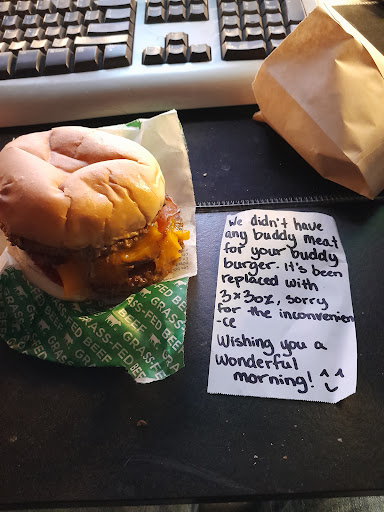 We didn't have
any buddy meat
for your buddy
burger. It's been
replaced with
3x3oz, sorry
for the inconvenien
-ce
Wishing you a
wonderful
morning! ^^
GRASS-FED BEEF
GRASS-FED BEEF
GRASS-FED BEEF